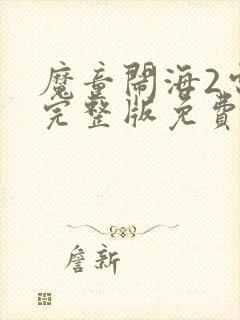 魔童鬧海2
完整版免費
詹新